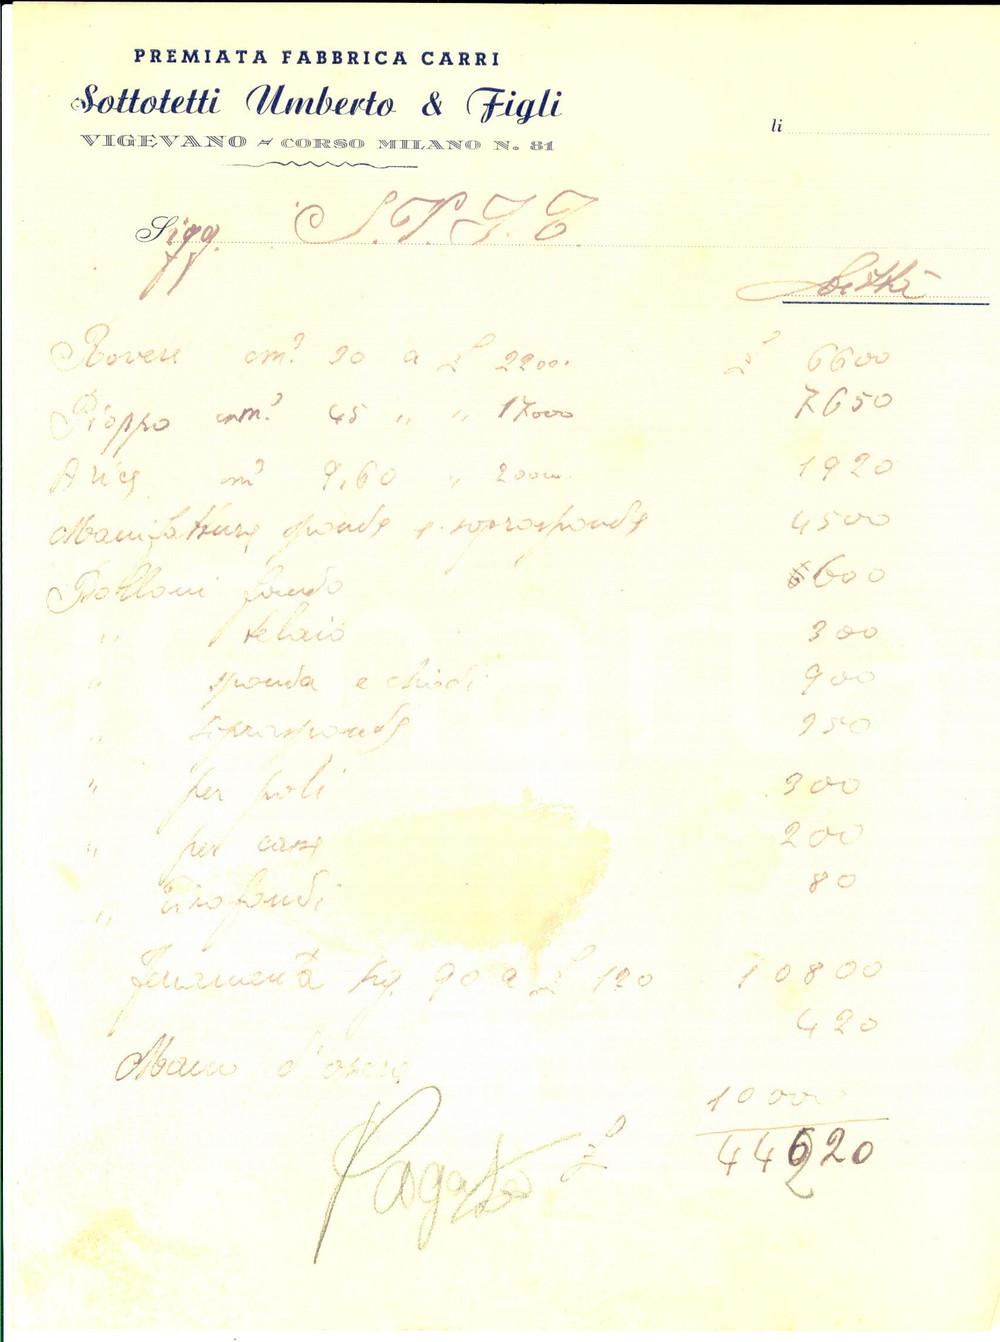 PREMIATA FABBRICA CARRI
Sottotetti Umberto & Figli
VIGEVANO - CORSO MILANO N. 81
li
Sigg. S.P.I.C.
Città
Rovere cm³ 30 a £ 22000. £ 6600
Pioppo cm³ 45 " " 17000 7650
m³ 9,60 " 20000. 1920
Manifatture sponde e soprasponde 4500
Bolloni fondo 600
" telaio 300
" sponda e chiodi 900
" soprasponde 350
" per poli 300
" per casse 200
" Tirafondi 80
Ferramenta Kg. 90 a £ 120 10800
420
Mano d'opera
10000
Pagato £ 44620